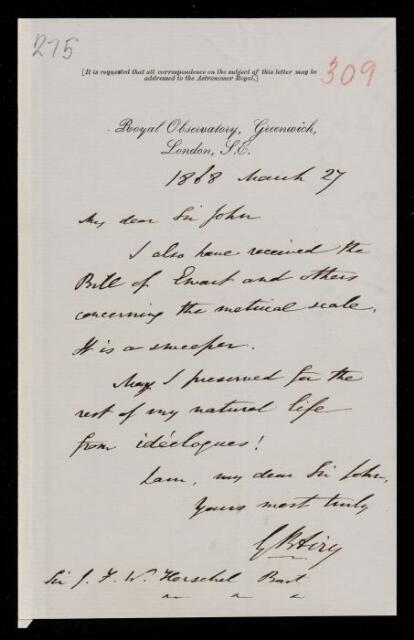 275
309
[It is requested that all correspondence on the subject of this letter may be
addressed to the Astronomer Royal.]
Royal Observatory, Greenwich,
London, S.E.
1868 March 27
My dear Sir John
I also have received the
Bill of Ewart and others
concerning the metrical scale.
It is a sweeper.
May I preserved for the
rest of my natural life
from idéologues!
I am, my dear Sir John,
Yours most truly
G B Airy
Sir J. F. W. Herschel Bart